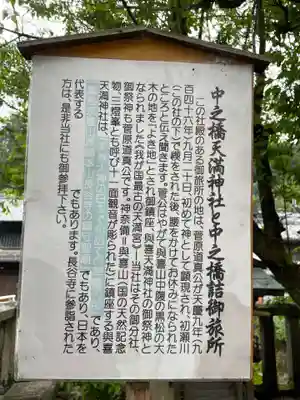 中之橋天満神社と中之橋詰御旅所
この社殿のある御旅所の地は、菅原道真公が天慶九年(九
百四十六年)九月二十日、初めて神として顕現され、初瀬川
(この社の下)で禊をされた後、腰をかけてお休みになられた
ところと伝え聞きます。菅公はやがて與喜山中腹の黒松の大
木の地を「よき地」とされ御鎮座、與喜天満神社の御祭神と
なられました(我が国最古の天満宮)―当社はその御分社、
御祭神も菅原道真公です。神奈備=與喜山(国の天然記念
物、三燈峯とも呼び十一面観音が彫られた)に鎮座する與喜
天満神社は、
であり、
でもあり、日本を
代表する
でもあります。長谷寺に参詣された
方は、是非当社にも御参拝下さい。